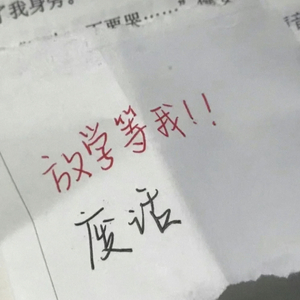 了我身旁。
不要哭……”
放学等我!!
废话